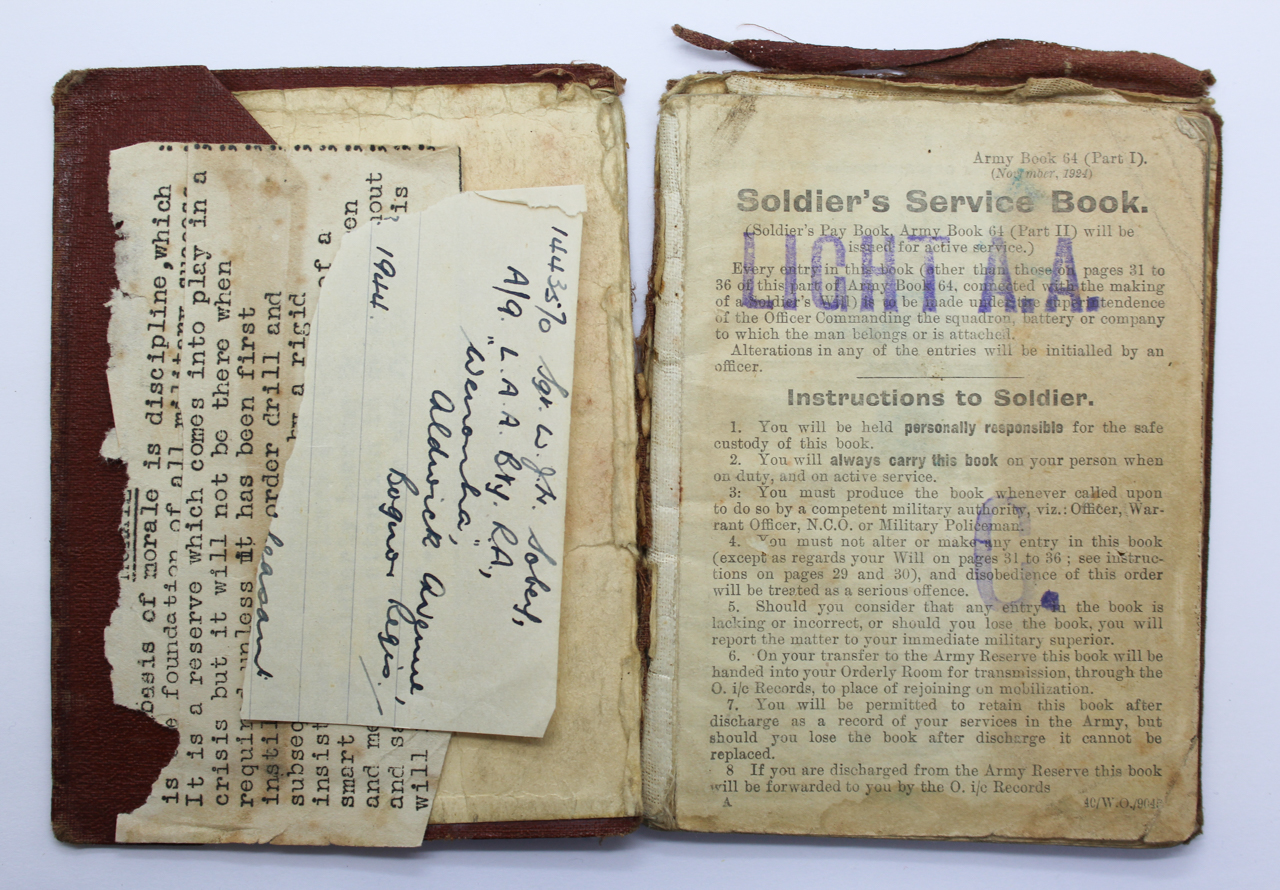 basis of morale is discipline, which
is foundation of all
It is a reserve which comes into play in a
crisis but it will not be there when
unless it has been first
order drill and
by a rigid
of a
smart
will
is
pleasant
1944.
1443570 Sgr. W. J.
A/9. L.A.A. Bty. RA,
"Wenonha",
Aldwick Avenue,
Bognor Regis.
Army Book 64 (Part I).
(November, 1924)
Soldier's Service Book.
(Soldier's Pay Book, Army Book 64 (Part II) will be
issued for active service.)
LIGHT A.A.
Every entry in this book (other than those on pages 31 to
36 of this part of Army Book 64, connected with the making
of a Soldier's Will) will be made under the superintendence
of the Officer Commanding the squadron, battery or company
to which the man belongs or is attached.
Alterations in any of the entries will be initialled by an
officer.
Instructions to Soldier.
1. You will be held personally responsible for the safe
custody of this book.
2. You will always carry this book on your person when
on duty, and on active service.
3: You must produce the book whenever called upon
to do so by a competent military authority, viz.: Officer, War-
rant Officer, N.C.O. or Military Policeman.
4. You must not alter or make any entry in this book
(except as regards your Will on pages 31 to 36 ; see instruc-
tions on pages 29 and 30), and disobedience of this order
will be treated as a serious offence.
C.
5. Should you consider that any entry in the book is
lacking or incorrect, or should you lose the book, you will
report the matter to your immediate military superior.
6. On your transfer to the Army Reserve this book will be
handed into your Orderly Room for transmission, through the
O. i/c Records, to place of rejoining on mobilization.
7. You will be permitted to retain this book after
discharge as a record of your services in the Army, but
should you lose the book after discharge it cannot be
replaced.
8 If you are discharged from the Army Reserve this book
will be forwarded to you by the O. i/c Records
A